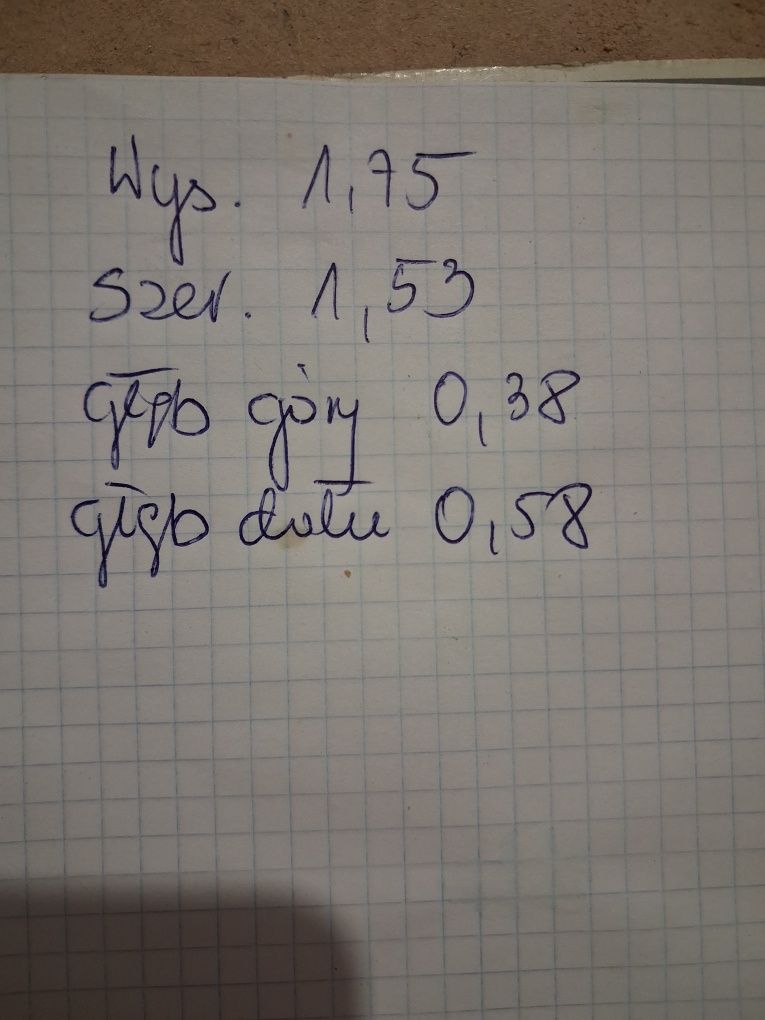 Wys. 1,75
Szer. 1,53
głęb góry 0,38
głęb dołu 0,58